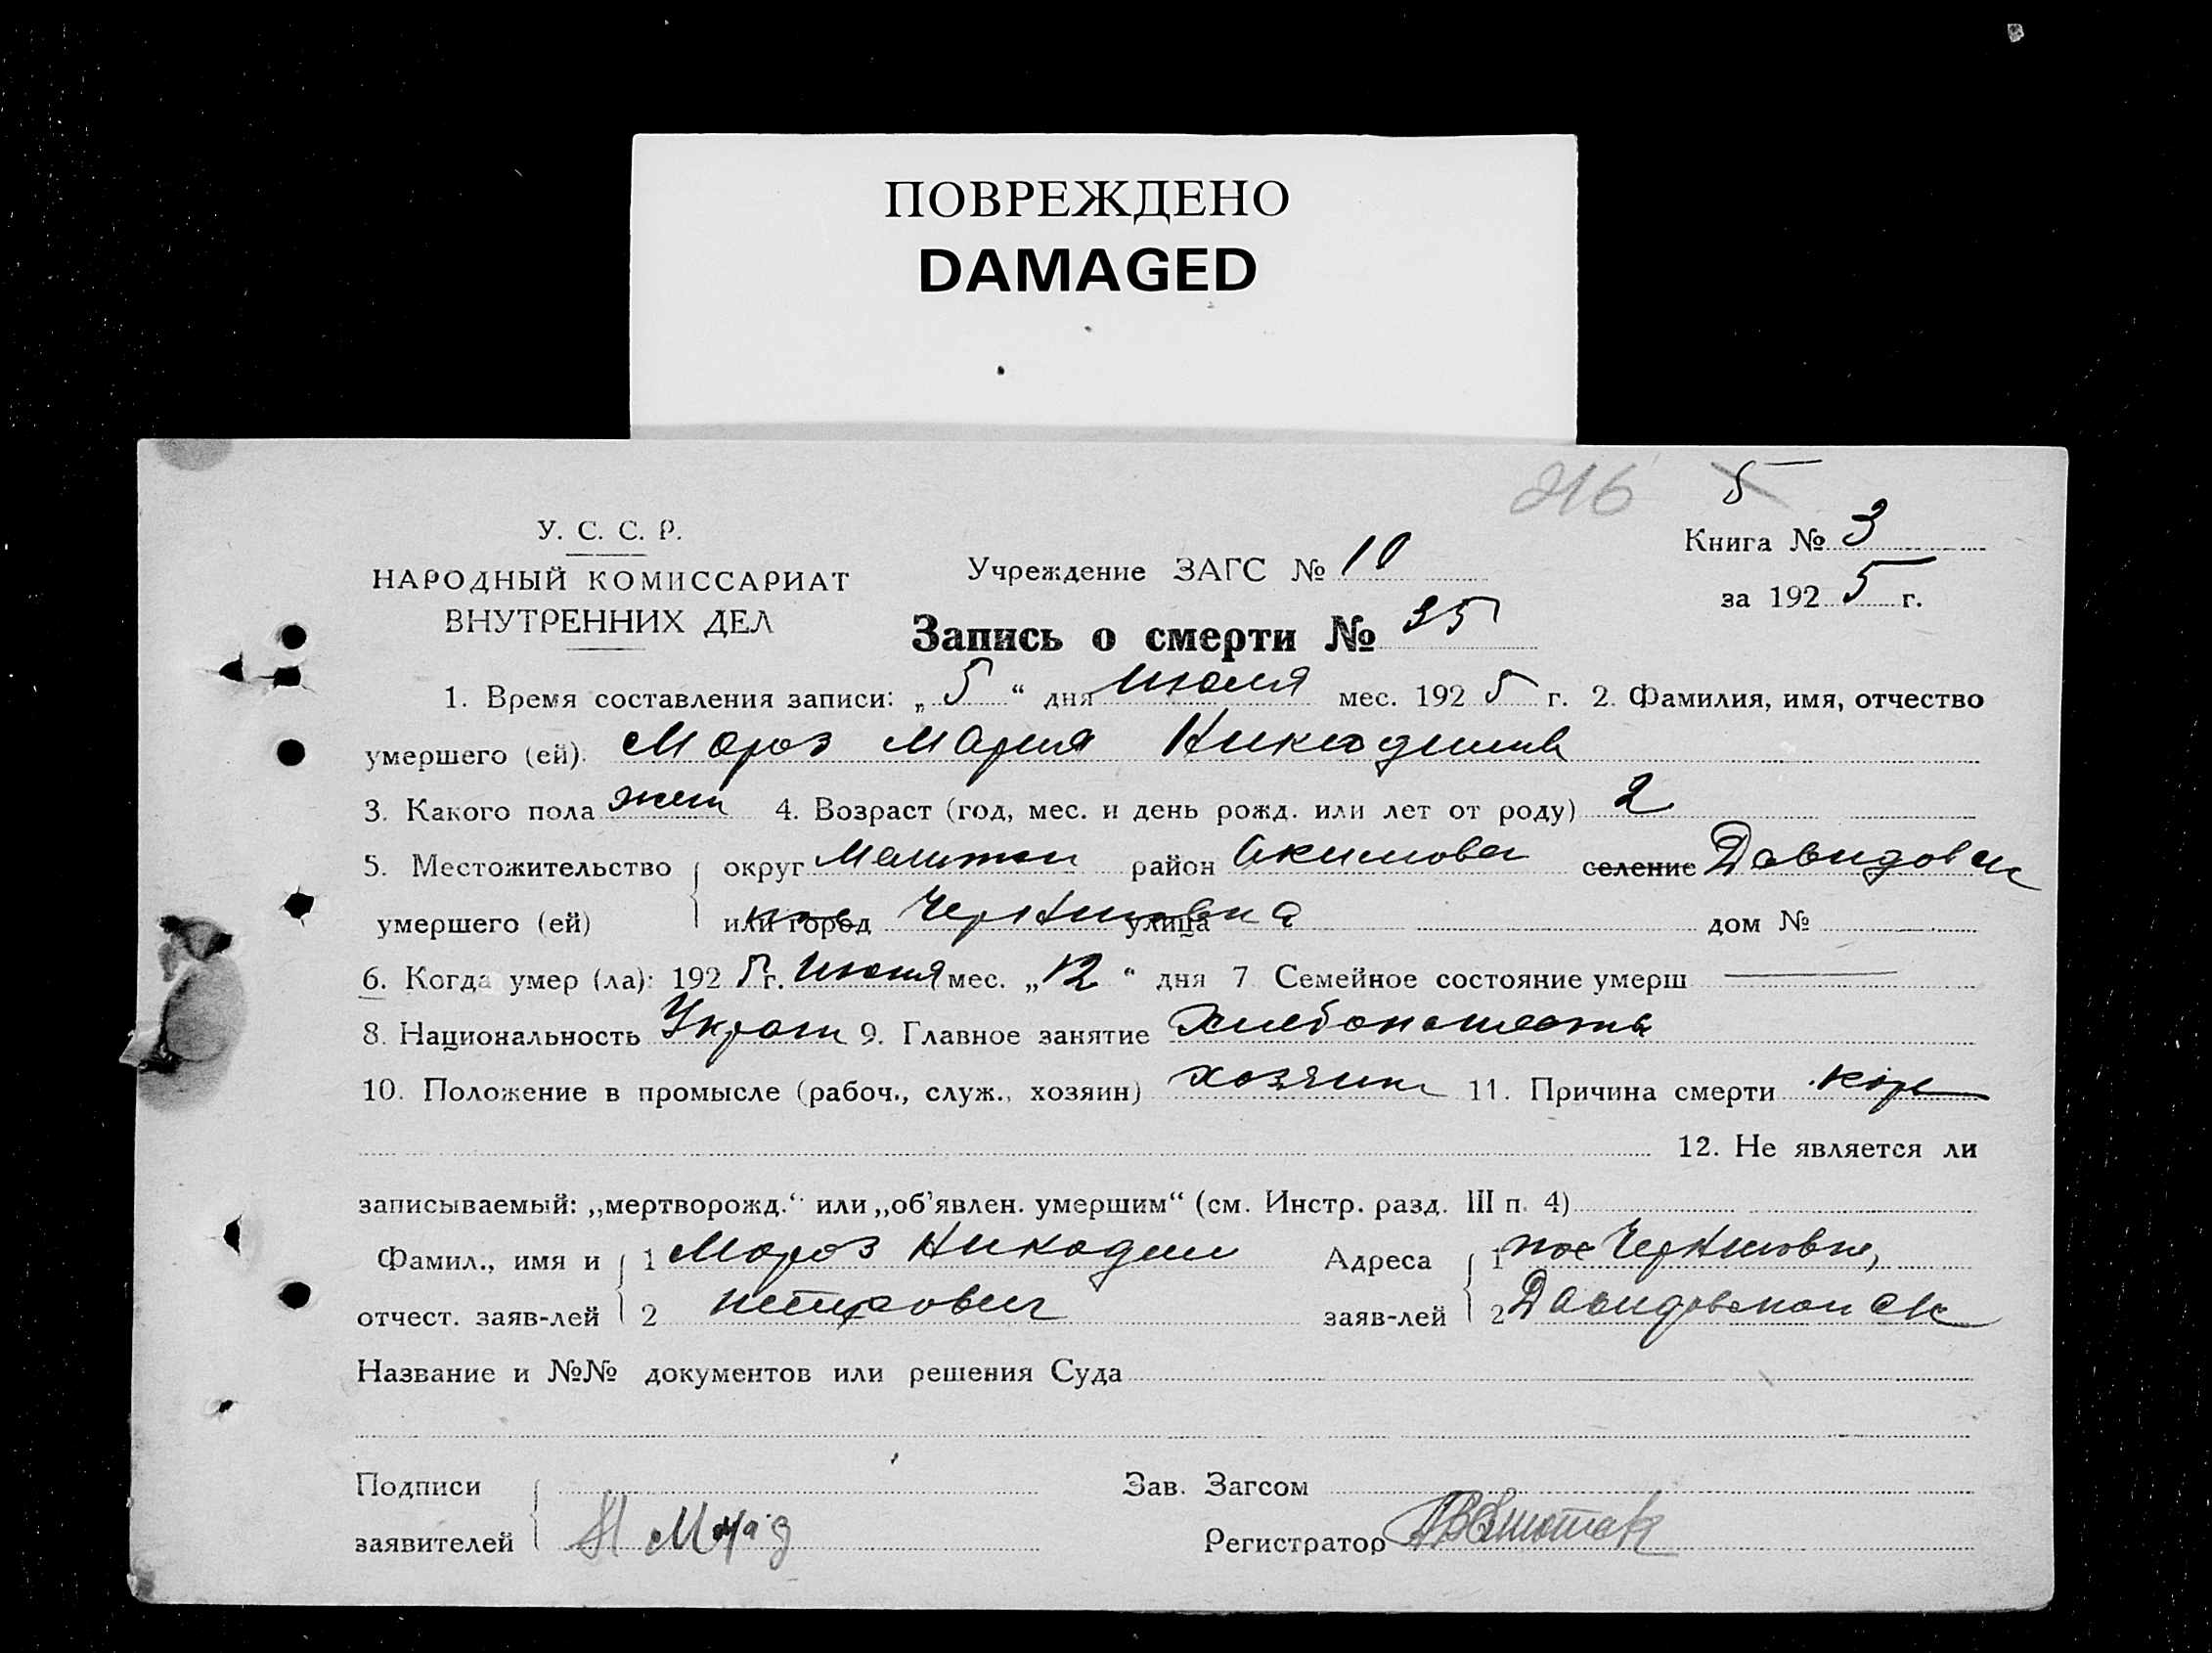 ПОВРЕЖДЕНО
DAMAGED
216 5
У. С. С. Р.
НАРОДНЫЙ КОМИССАРИАТ
ВНУТРЕННИХ ДЕЛ
Учреждение ЗАГС № 10
Книга № 3
за 1925 г.
Запись о смерти № 35
1. Время составления записи: „5“ дня Июля мес. 1925 г. 2. Фамилия, имя, отчество
умершего (ей). Мороз Мария Никодимов
3. Какого пола жен 4. Возраст (год, мес. и день рожд. или лет от роду) 2
5. Местожительство округ район Акимовск селение Давидовск
умершего (ей) или город улица дом №
6. Когда умер (ла): 1925 г. Июня мес. „12“ дня 7 Семейное состояние умерш
8. Национальность Украин 9. Главное занятие Хлебопашество
10. Положение в промысле (рабоч., служ., хозяин) хозяин 11. Причина смерти корь
12. Не является ли
записываемый: „мертворожд.“ или „об'явлен. умершим“ (см. Инстр. разд. III п. 4)
Фамил., имя и 1 Мороз Никодим Адреса 1 пос
отчест. заяв-лей 2 Петрович заяв-лей 2 Давидовской с/с
Название и №№ документов или решения Суда
Подписи Зав. Загсом
заявителей Н Мороз Регистратор